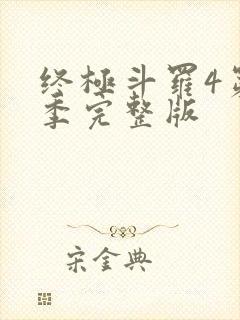 终極斗羅4第
季完整版
宋金典